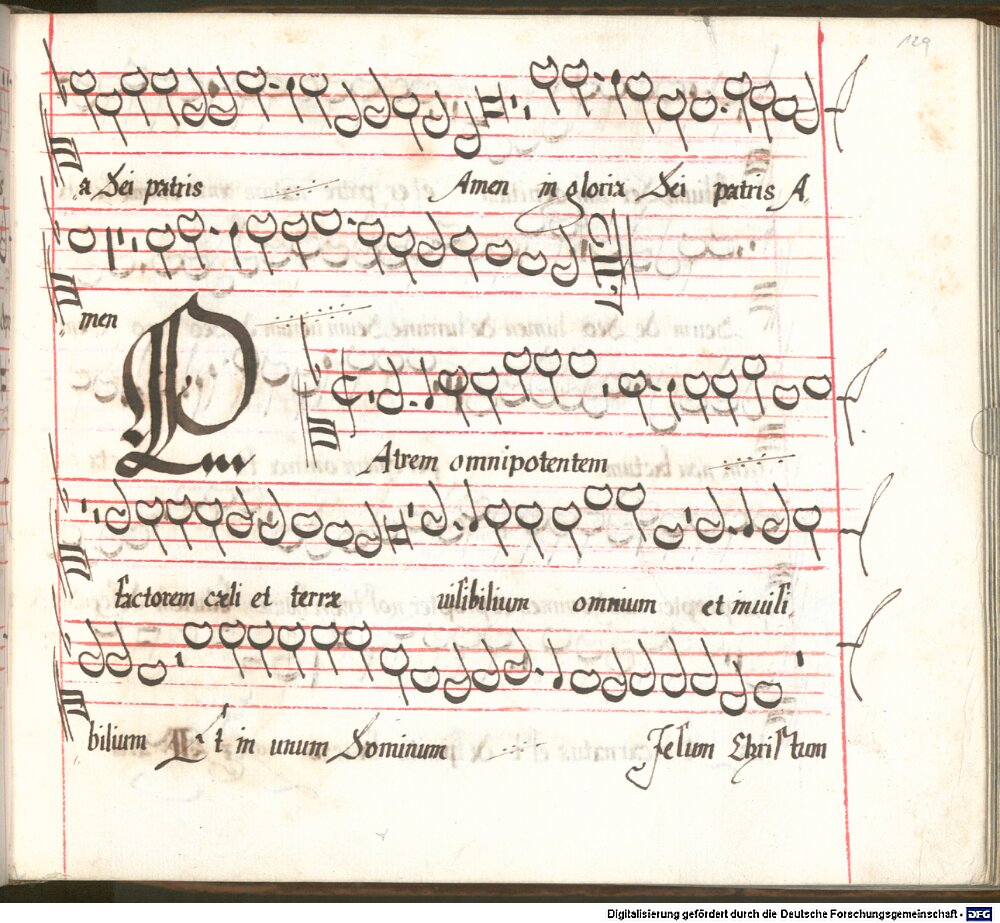 129
a Dei patris Amen in gloria Dei patris A,
men
P Atrem omnipotentem
factorem cæli et terræ visibilium omnium et invisi
bilium Et in unum Dominum Jesum Christum
Digitalisierung gefördert durch die Deutsche Forschungsgemeinschaft - DFG